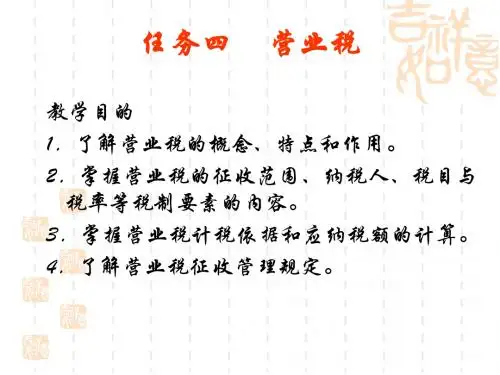 任务四 营业税
吉祥如意
教学目的
1. 了解营业税的概念、特点和作用。
2. 掌握营业税的征收范围、纳税人、税目与
税率等税制要素的内容。
3. 掌握营业税计税依据和应纳税额的计算。
4. 了解营业税征收管理规定。